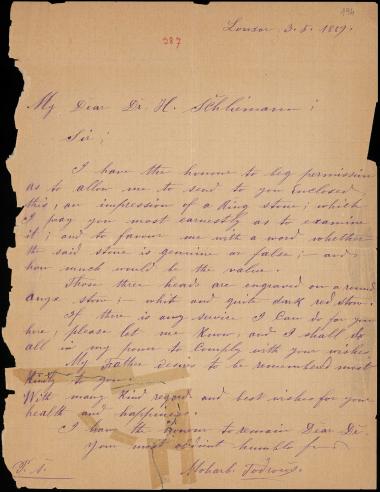 194
387
Louxor 3. 5. 1889.
My Dear Dr. H. Schliemann;
Sir;
I have the honour to beg permission
as to allow me to send to you Enclosed
this, an impression of a Ring stone; which
I pray you most earnestly as to examine
it; and to favour me with a word whether
the said stone is genuine or false; and
how much would be the value.
Those three heads are engraved on a round
stow; whit and quite dark red stow.
If there is any service I can do for you
here, please let me know, and I shall do
all in my power to comply with your wishes
My Father desires to be remembered most
Kindly to you.
With many Kind regards and best wishes for your
health and happiness.
I have the honour to remain Dear Dr.
your most obdint humble
P. S.
Moharb Todrous.